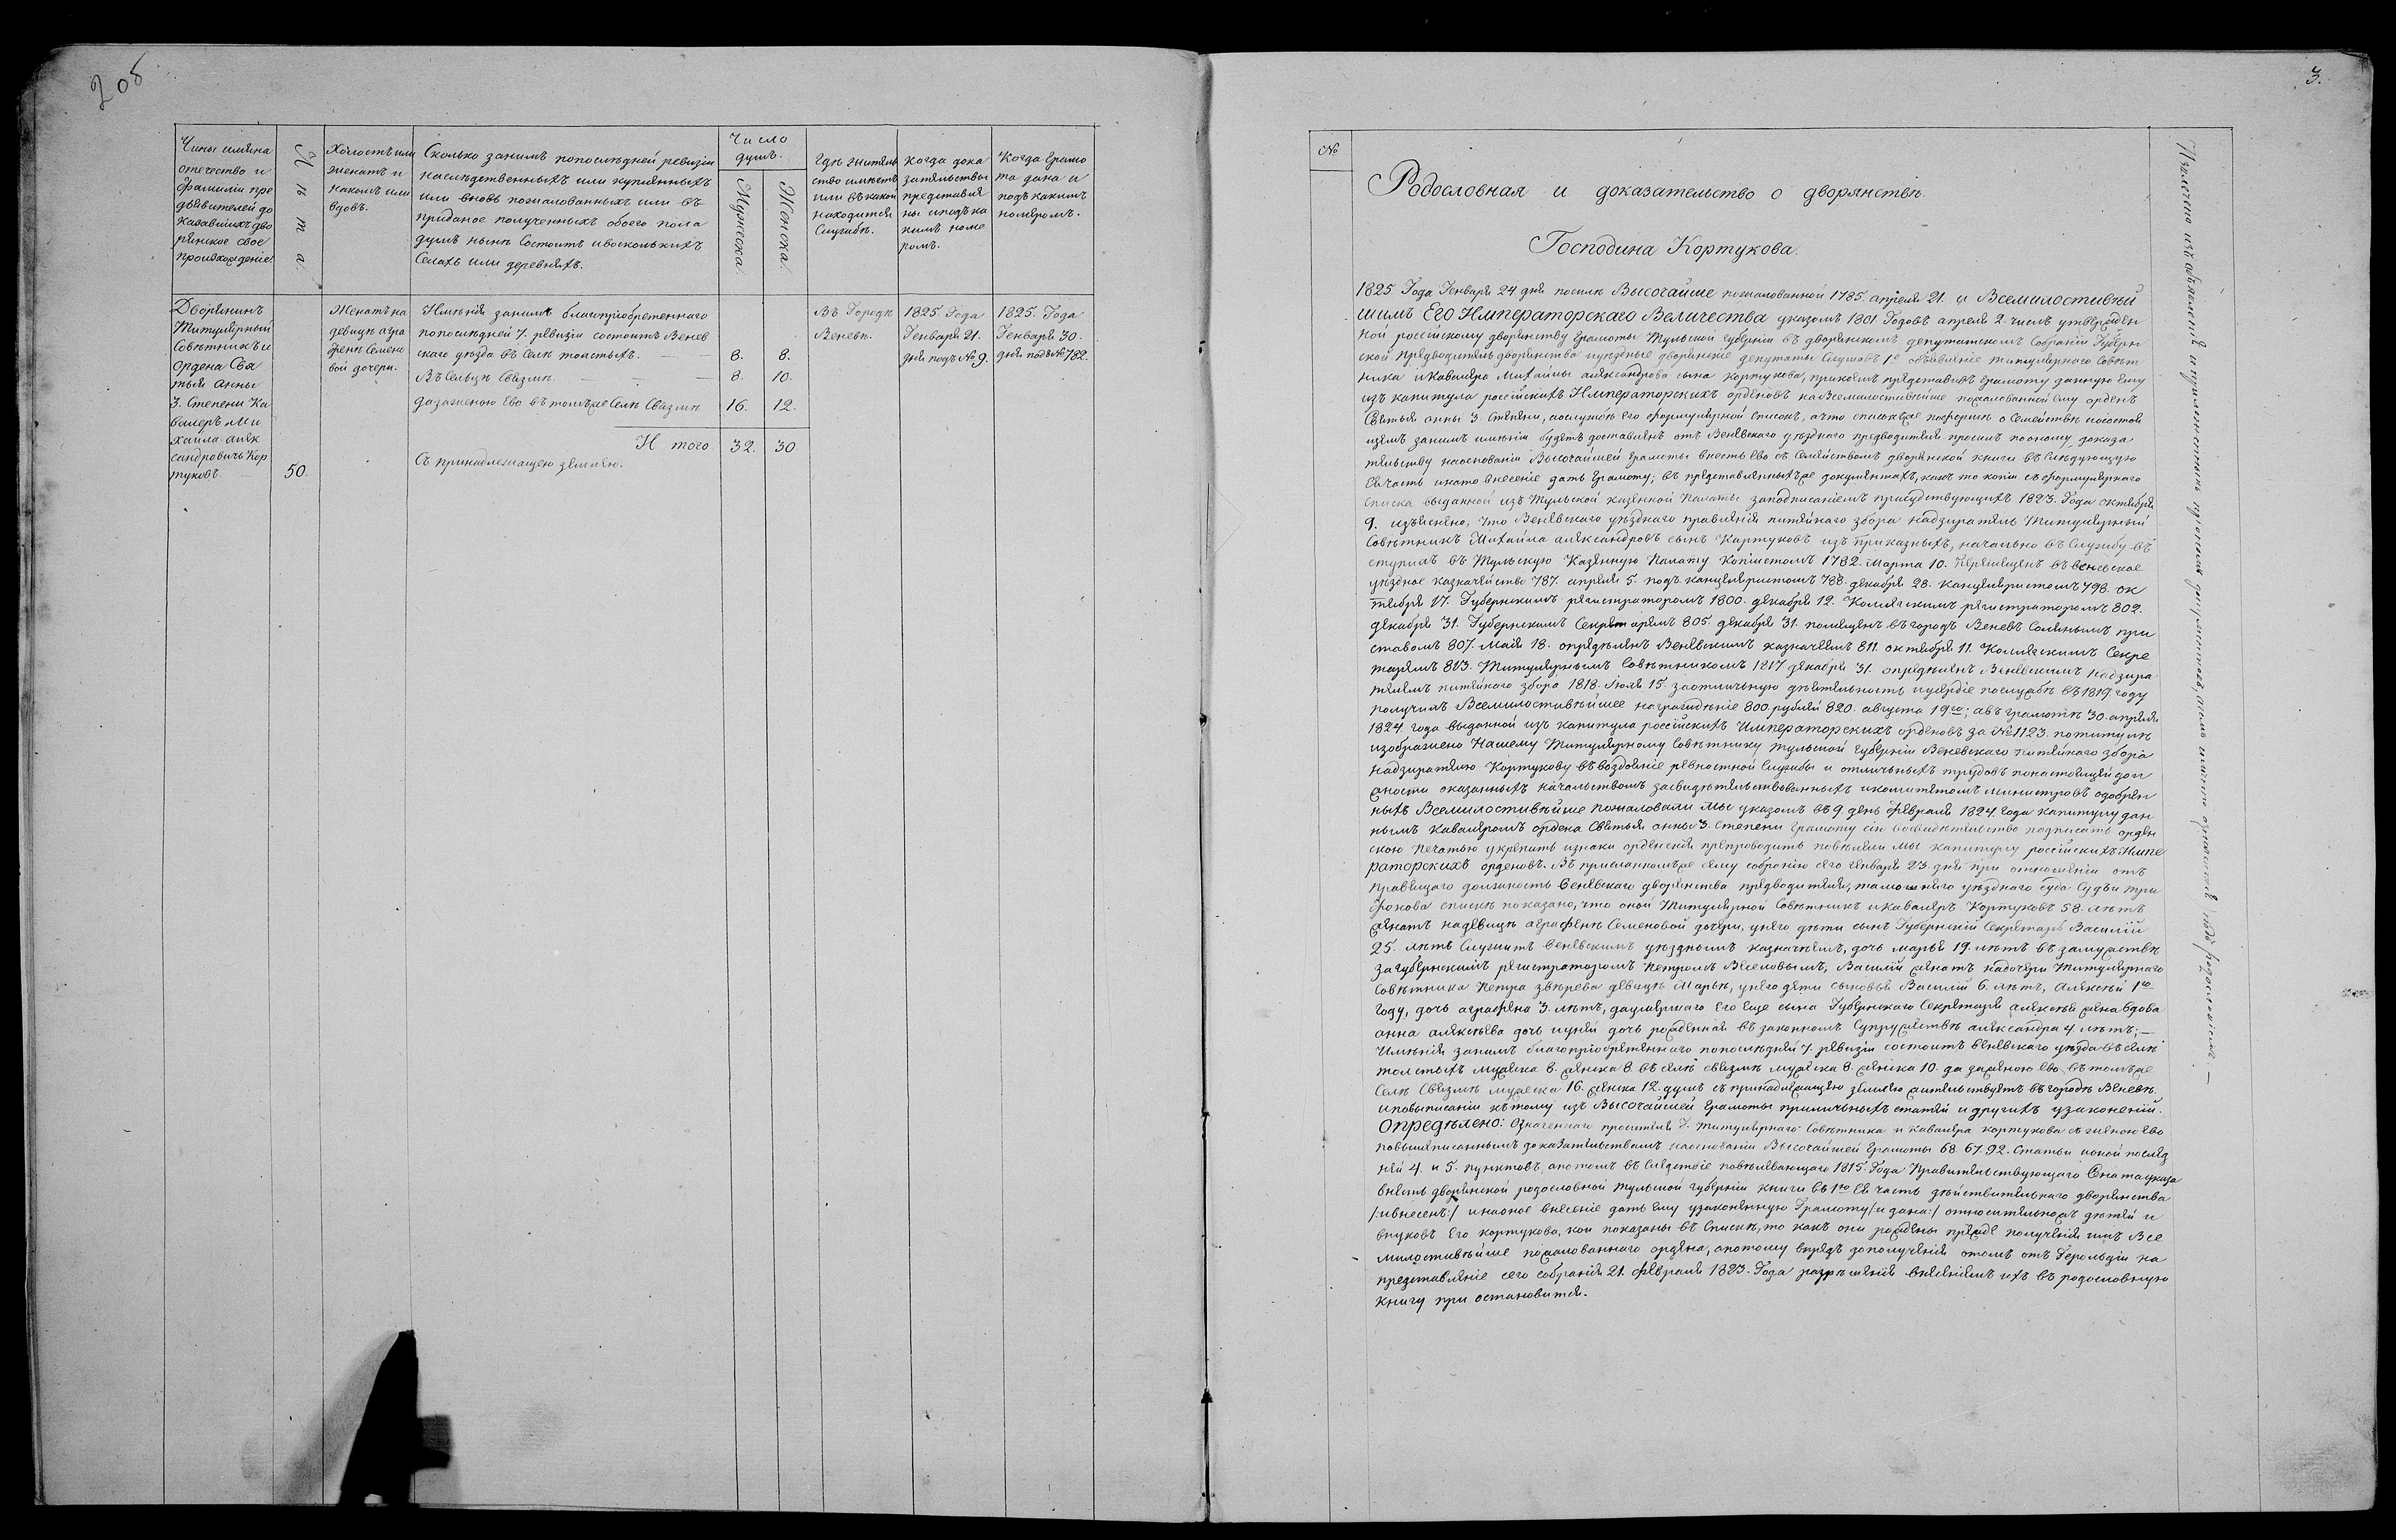 205
Чины имяна
отечество и
фамилiи пре
дъявителей до
казавшихъ дво
рянское свое
произхожденiе.
Лѣта.
Холостъ или
женатъ и
накомъ или
вдовъ.
Сколько занимъ попослѣдней ревизiи
наслѣдственныхъ или купленныхъ
или вновь пожалованныхъ или въ
приданое полученныхъ обоего пола
душъ нынѣ состоитъ ивосколькихъ
Селахъ или деревняхъ.
Число
душъ.
Мужеска.
Женска.
Гдѣ житель
ство имѣетъ
или въ какой
находится
Службѣ.
Когда дока
зательствы
представле
ны иподъ ка
кимъ номе
ромъ.
Когда грамо
та дана и
подъ какимъ
номеромъ.
Дворянинъ
Титулярный
Совѣтникъ и
ордена Свя
тыя Анны
3. Степени Ка
валеръ Ми
хаила Алек
сандровичь Кор
туковъ. 50.
Женатъ на
девицѣ агра
фенѣ Семено
вой дочери.
Имѣнiя занимъ благопрiобретеннаго
попослѣдней 7. ревизiи состоитъ Венев
скаго уѣзда въ Селѣ толстыхъ. — 8. 8.
Въ Сельцѣ Свѣзмѣ — 8. 10.
дазаженою Ево въ томъже Селѣ Свѣзмѣ 16. 12.
И того 32. 30
Съ принадлежащею землею.
Въ Городѣ
Веневѣ.
1825 Года
Генваря 21.
дня подъ № 9.
1825. Года
Генваря 30.
дня подъ № 782.
3.
№
Родословная и доказательство о дворянствѣ.
Господина Кортукова.
1825. Года Генваря 24 дня посилѣ Высочайше пожалованной 1785. апреля 21. и Всемилостивѣй
шимъ Его Императорскаго Величества указомъ 1801. Годовъ апреля 2. числъ утвержден
ной россiйскому дворянству Грамоты Тульской Губернiи въ дворянскомъ депутатскомъ Собранiи Губерн
ской Предводитель дворянства иуѣздные дворянскiе депутаты Слушавъ 1е объявленiе титулярнаго Совѣт
ника иКавалера Михайлы александрова сына Кортукова, прикоемъ представилъ Грамоту данную Ему
изъ капитула россiйскихъ Императорскихъ орденовъ на Всемилостивѣйше пожалованной Ему орденъ
Святыя анны 3. Степени, ислужбѣ Его формулярной Списокъ, ачто списокже поформе о Семействѣ исостоя
щемъ занимъ имѣнiи будетъ доставленъ отъ Веневскаго уѣзднаго предводителя просилъ пооному доказа
тельству наоснованiи Высочайшей Грамоты внесть Ево съ Семѣйствомъ дворянской книги въ Слѣдующую
Ея часть инато внесенiе дать Грамоту; въ представленныхъже документахъ, какъ то копiи съ формулярнаго
Списка выданной изъ Тульской казенной Палаты заподписанiемъ присудствующихъ 1823. Года октября
9. изъяснено, что Веневскаго уѣзднаго правленiя питейнаго збора надзиратель Титулярный
Совѣтникъ Михайла александровъ сынъ Картуковъ изъ приказныхъ, начально въ Службу в
ступилъ въ Тульскую Казенную Палату Копiистомъ 1782. Марта 10. перемещенъ въ веневское
уѣздное казначейство 787. апреля 5. подъ канцеляристомъ 788. декабря 28. канцеляристомъ 798. ок
тября 17. Губернскимъ регистраторомъ 1800. декабря 12. Коллежскимъ регистраторомъ 802.
декабря 31. Губернскимъ Секретаремъ 805. декабря 31. помещенъ въ городъ Веневъ Солянымъ при
ставомъ 807. Маiя 18. опредѣленъ Веневскимъ казначеемъ 811. октября 11. Коллежскимъ Секре
таремъ 813. Титулярнымъ Совѣтникомъ 1817 декабря 31. опредѣленъ Веневскимъ надзира
телемъ питейнаго збора 1818. Июля 15. заотличную дѣятельность иусердiе послужбѣ въ 1819. году
получилъ Всемилостивѣйшее награжденiе 800. рублей 820. августа 19го; авъ грамотѣ 30. апреля
1824. года выданной изъ капитула россiйскихъ Императорскихъ орденовъ за № 1123. потитулѣ
изображено Нашему Титулярному Совѣтнику Тульской Губернiи Веневскаго питейнаго збора
надзирателю Кортукову въ воздаянiе ревностной Службы и отличныхъ трудовъ понастоящей дол
жности оказанныхъ начальствомъ засвидѣтельствованныхъ икомитетомъ министровъ одобрен
ныхъ Всемилостивѣйше пожаловали мы указомъ въ 9. день Февраля 1824. года капитулу дан
нымъ кавалеромъ ордена Святыя анны 3. Степени Грамоту сiю восвидѣтельство подписать орден
скою печатью укрепить изнаки орденскiя препроводить повелѣли мы капитулу россiйскихъ Импе
раторскихъ орденовъ. Въ присланномъже сему собранiю сего Генваря 23. дня при отношенiи отъ
правящаго должность Веневскаго дворянства предводителя, тамошняго уѣзднаго суда судьи три
фонова спискѣ показано, что оной Титулярной Совѣтникъ икавалеръ Кортуковъ 58. лѣтъ
женатъ надевицѣ аграфенѣ Семеновой дочери, унего дѣти сынъ Губернскiй Секретарь Василiй
25. лѣтъ Служитъ Веневскимъ уѣзднымъ казначеемъ, дочь марья 19. лѣтъ въ замужствѣ
загубернскимъ регистраторомъ Петромъ Веселовымъ, Василiй женатъ надочери титулярнаго
Совѣтника Петра звѣрева девицѣ Марьѣ, унего дети сыновья Василiй 6. лѣтъ, Алексѣй 1го
году, дочь аграфена 3. лѣтъ, даумершаго Его еще сына Губернскаго Секретаря алексѣя жена вдова
анна алексѣева дочь иунея дочь рожденная въ законномъ супружествѣ александра 4. лѣтъ; —
Имѣнiя занимъ благопрiобретеннаго попослѣдней 7. ревизiи состоитъ Веневскаго уѣзда въ Селѣ
толстыхъ мужска 8. женска 8. въ селѣ свѣзмѣ мужеска 8. женска 10. да заженою Ево, въ томъже
Селѣ Свѣзмѣ мужеска 16. женска 12. душъ съ принадлежащею землею жительствуетъ въ городѣ Веневѣ.
иповыписанiи къ тому изъ Высочайшей Грамоты приличныхъ статей и другихъ узаконенiй.
Опредѣлено: Означеннаго просителя Г. титулярнаго Совѣтника и кавалера кортукова съ женою Ево
повышеписаннымъ доказательствамъ наоснованiи Высочайшей Грамоты 68. 67. 92. Статьи ионой послед
ней 4. и 5. пунктовъ, апотомъ въ Следствiе повелѣвающаго 1815. Года Правительствующаго Сената указа
внесть дворянской родословной тульской губернiи книги въ 1ю Ея часть дѣйствительнаго дворянства
/:ивнесенъ:/ инаоное внесенiе дать Ему узаконенную Грамоту /:и дана:/ относительножъ дѣтей и
внуковъ Его кортукова, кои показаны въ Спискѣ, то какъ они рождены прежде полученiя имъ Все
милостивѣйше пожалованнаго ордена, апотому впредь дополученiя отомъ отъ Герольдiи на
представленiе сего собранiя 21. Февраля 1823. Года разрешенiя внесенiемъ ихъ въ родословную
книгу при остановится.